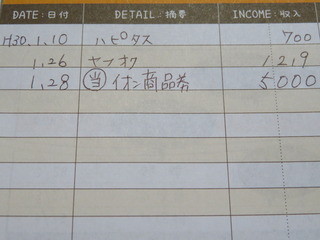 DATE:日付 DETAIL:摘要 INCOME:収入
H30.1.10 ハピタス 700
1.26 ヤフオク 1219
1.28 当 イオン商品券 5000